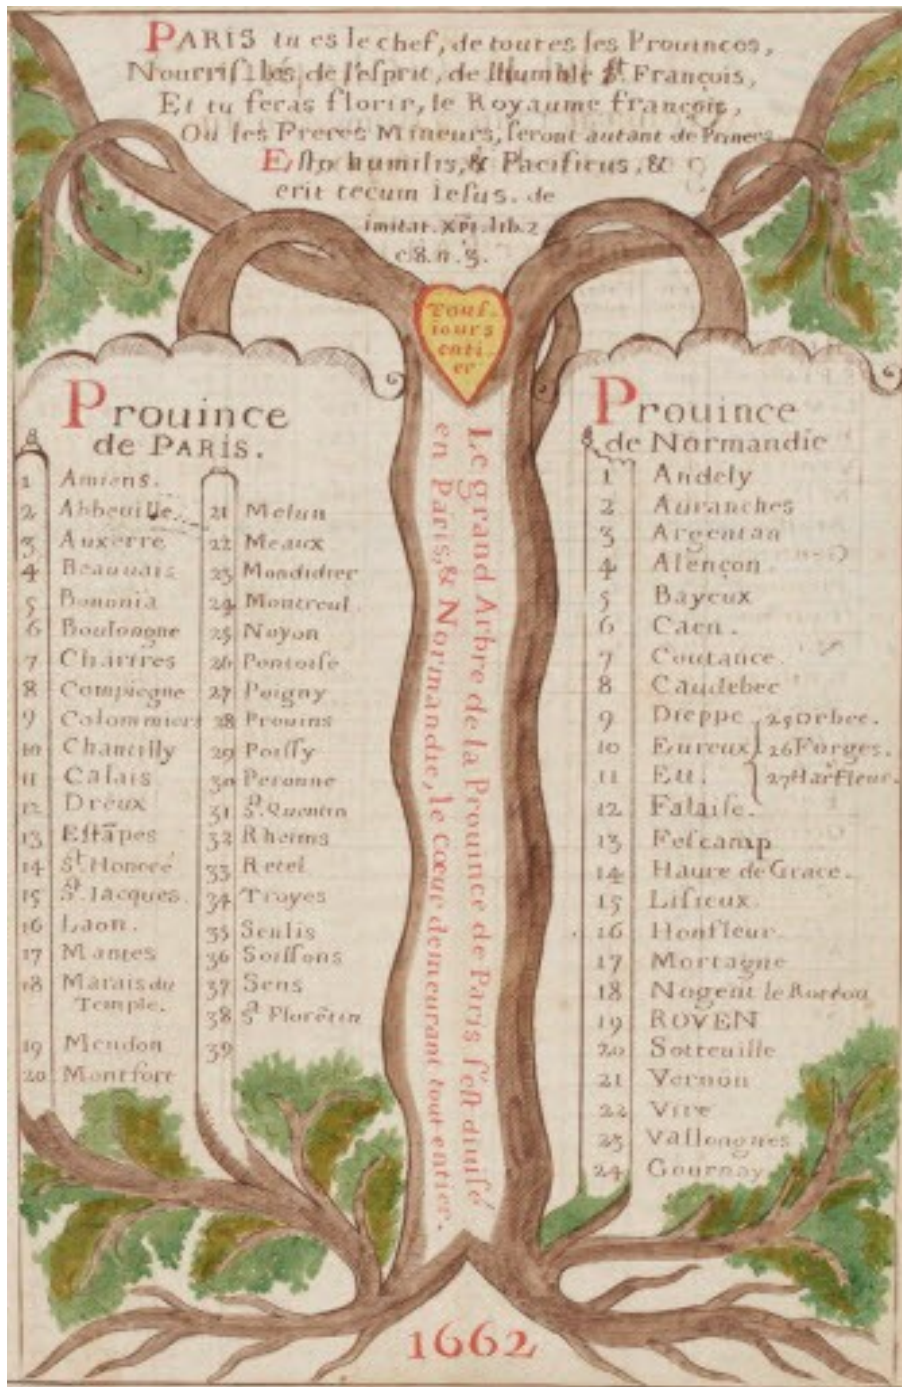 PARIS tu es le chef, de toutes les Prouinces,
Nourris les, de l'esprit, de l'humble St. François,
Et tu feras florir, le Royaume françois,
Ou les Freres Mineurs, seront autant de Princes
Esto humilis, & Pacificus, &
erit tecum Iesus. de
imitat. Xpi. lib. 2
c8. n. 3.
Tous-
iours
enti-
er
Prouince
de PARIS.
1 Amiens.
2 Abbeuille
3 Auxerre
4 Beauuais
5 Bononia
6 Boulongne
7 Chartres
8 Compiegne
9 Colommiers
10 Chantilly
11 Calais
12 Dreux
13 Estāpes
14 St. Honoré
15 St. Jacques.
16 Laon.
17 Mantes
18 Marais du
Temple.
19 Meudon
20 Montfort
21 Melun
22 Meaux
23 Mondidier
24 Montreul
25 Noyon
26 Pontoise
27 Poigny
28 Prouins
29 Poissy
30 Peronne
31 St. Quentin
32 Rheims
33 Retel
34 Troyes
35 Senlis
36 Soissons
37 Sens
38 St Florētin
39
Le grand Arbre de la Prouince de Paris s'est diuisé
en Paris, & Normandie, le Cœur demeurant tout entier.
Prouince
de Normandie
1 Andely
2 Auranches
3 Argentan
4 Alençon
5 Bayeux
6 Caen.
7 Coutance.
8 Caudebec
9 Dieppe 25 Orbec.
10 Eureux 26 Forges.
11 Eu. 27 Harfleur.
12 Falaise.
13 Fescamp
14 Haure de Grace.
15 Lisieux.
16 Honfleur.
17 Mortagne
18 Nogent le Rotrou
19 ROVEN
20 Sotteuille
21 Vernon
22 Vire
23 Vallongnes
24 Gournay
1662